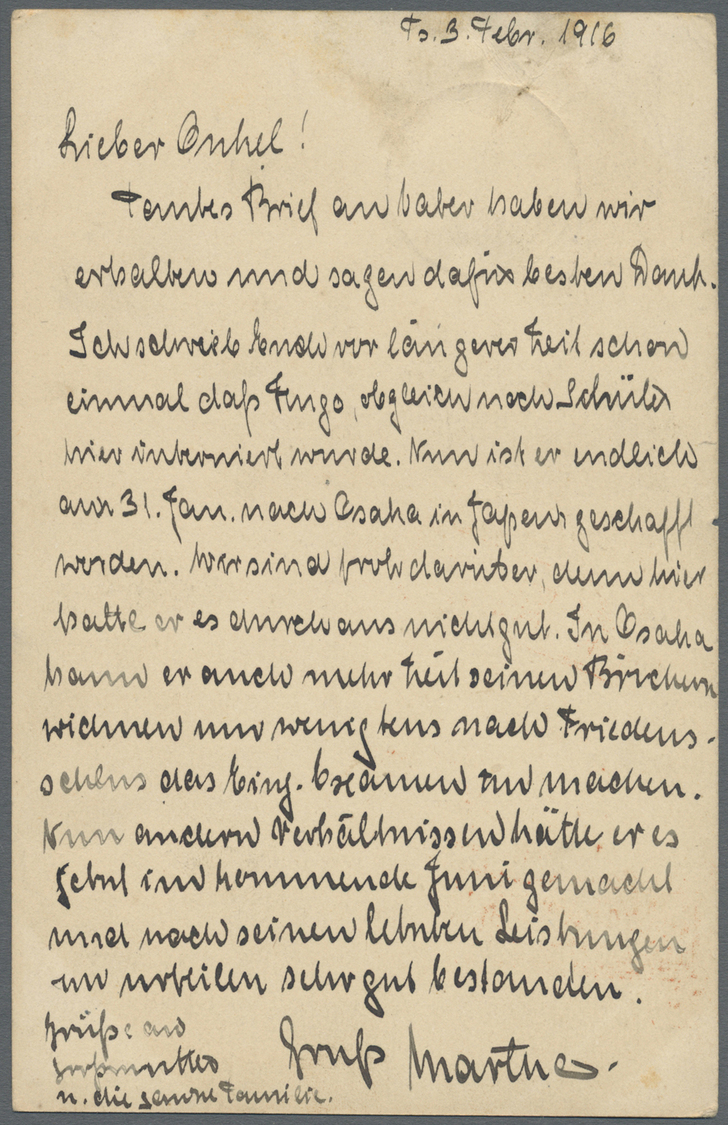 Ts. 3. Febr. 1916
Lieber Onkel!
Tantes Brief an Vater haben wir
erhalten und sagen dafür besten Dank.
Ich schrieb Euch vor längerer Zeit schon
einmal daß Hugo, obgleich noch Schüler
hier interniert wurde. Nun ist er endlich
am 31. Jan. nach Osaka in Japan geschafft
worden. Wir sind froh darüber, denn hier
hatte er es durchaus nicht gut. In Osaka
kann er auch mehr Zeit seinen Büchern
widmen um wenigstens nach Friedens-
schluss das Einj. Examen zu machen.
Unter andern Verhältnissen hätte er es
jetzt im kommende Juni gemacht
und nach seinen letzten Leistungen
zu urteilen sehr gut bestanden.
Grüße an
Großmutter
u. die ganze Familie.
Gruß Marthe.